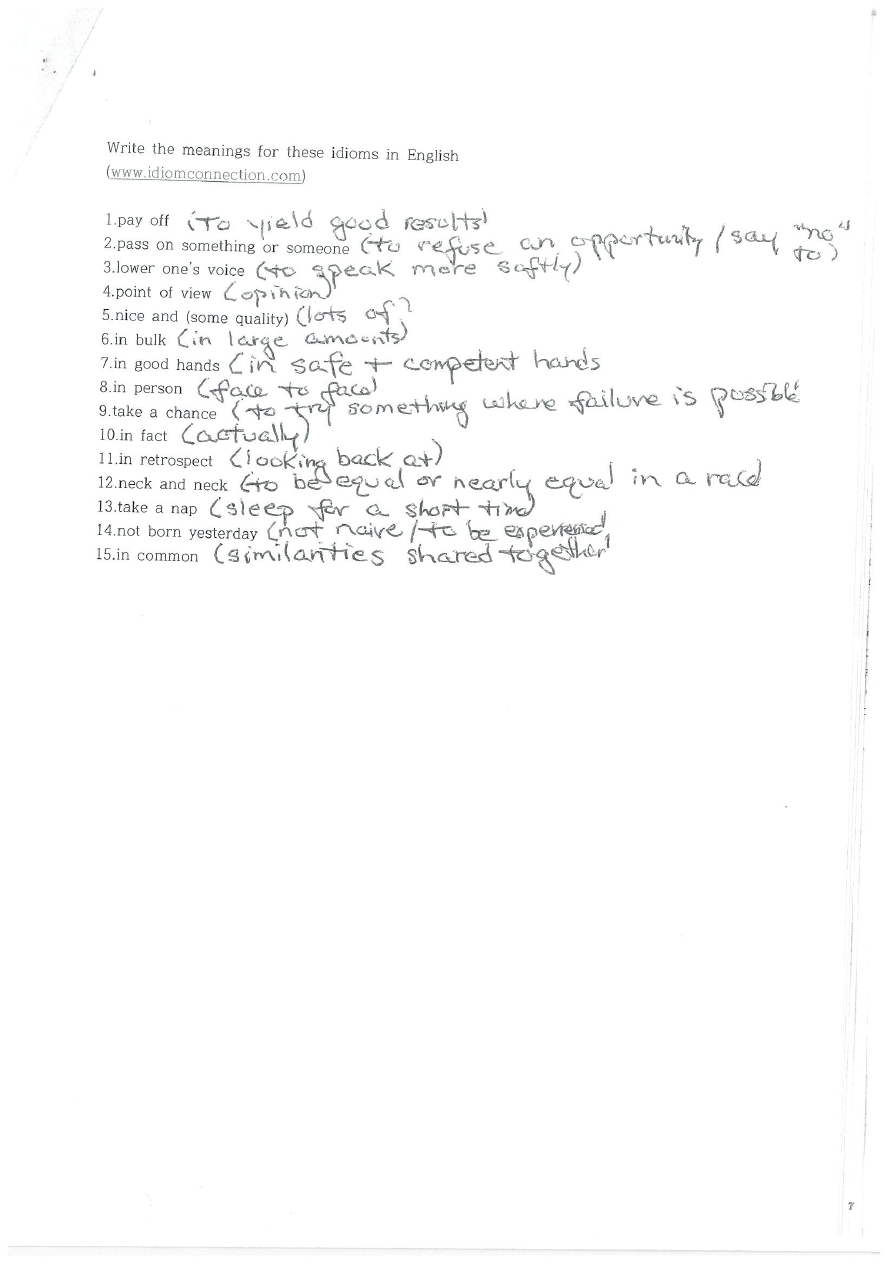 Write the meanings for these idioms in English
(www.idiomconnection.com)
1.pay off (To yield good results)
2.pass on something or someone (to refuse an opportunity / say "no" to)
3.lower one's voice (to speak more softly)
4.point of view (opinion)
5.nice and (some quality) (lots of)
6.in bulk (in large amounts)
7.in good hands (in safe + competent hands
8.in person (face to face)
9.take a chance (to try something where failure is possible
10.in fact (actually)
11.in retrospect (looking back at)
12.neck and neck (to be equal or nearly equal in a race)
13.take a nap (sleep for a short time)
14.not born yesterday (not naive / to be experienced)
15.in common (similarities shared together)
7